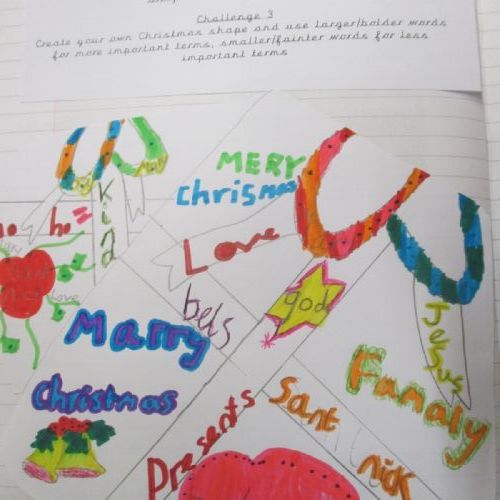 Challenge 3
Create your own Christmas shape and use larger/bolder words
for more important terms, smaller/fainter words for less
important terms
MERY
Christmas
Love
ho
kind
god
bels
Jesus
Marry
Christmas
Famaly
Presents
Sant
nick
love